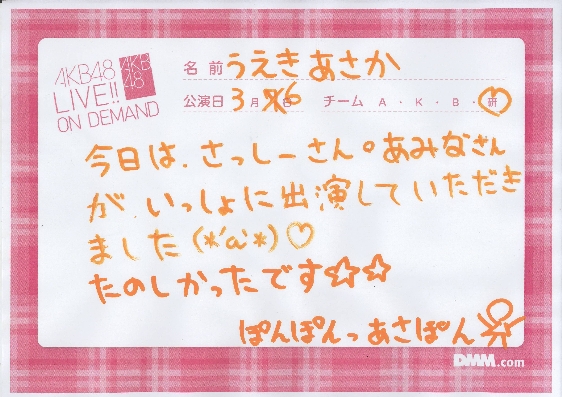 AKB48
LIVE!!
ON DEMAND
AKB
48
名前 うえきあさか
公演日 3月6日 チーム A・K・B・研
今日は、さっしーさん。あみなさん
がいっしょに出演していただき
ました(*´ω`*)♡
たのしかったです☆☆
ぽんぽんっあさぽん
DMM.com